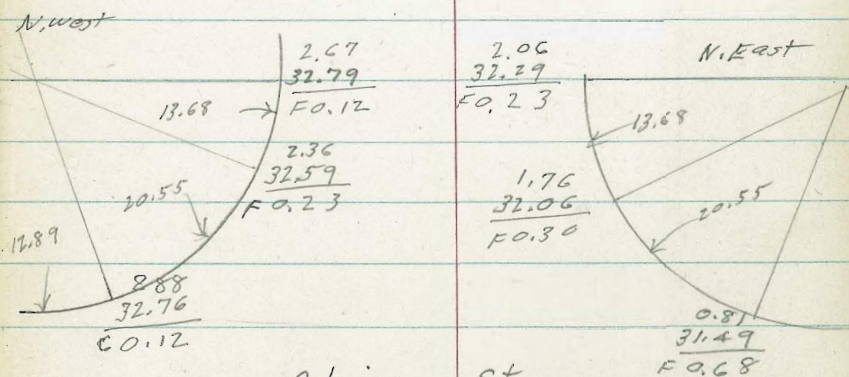 N. West
2.67
32.79
F 0.12
13.68
2.36
32.59
F 0.23
20.55
12.89
8.88
32.76
C 0.12
2.06
32.29
F 0.23
N. East
13.68
1.76
32.06
F 0.30
20.55
0.81
31.49
F 0.68
St